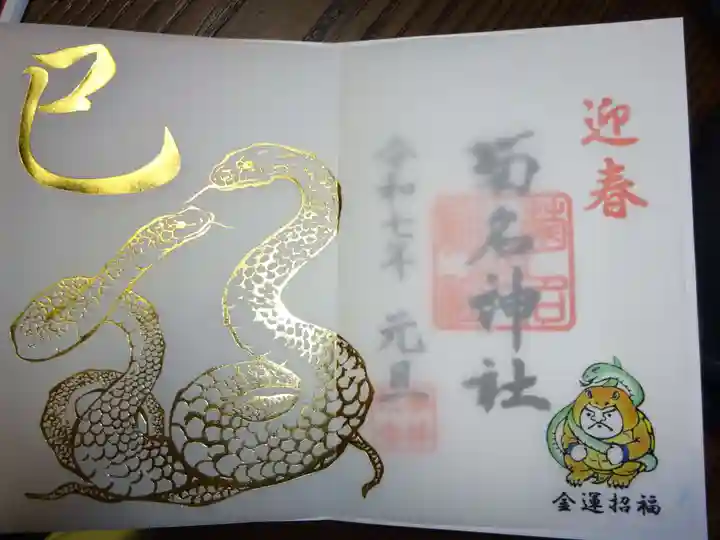 迎春
菊名神社
令和七年 元旦
金運招福
巳